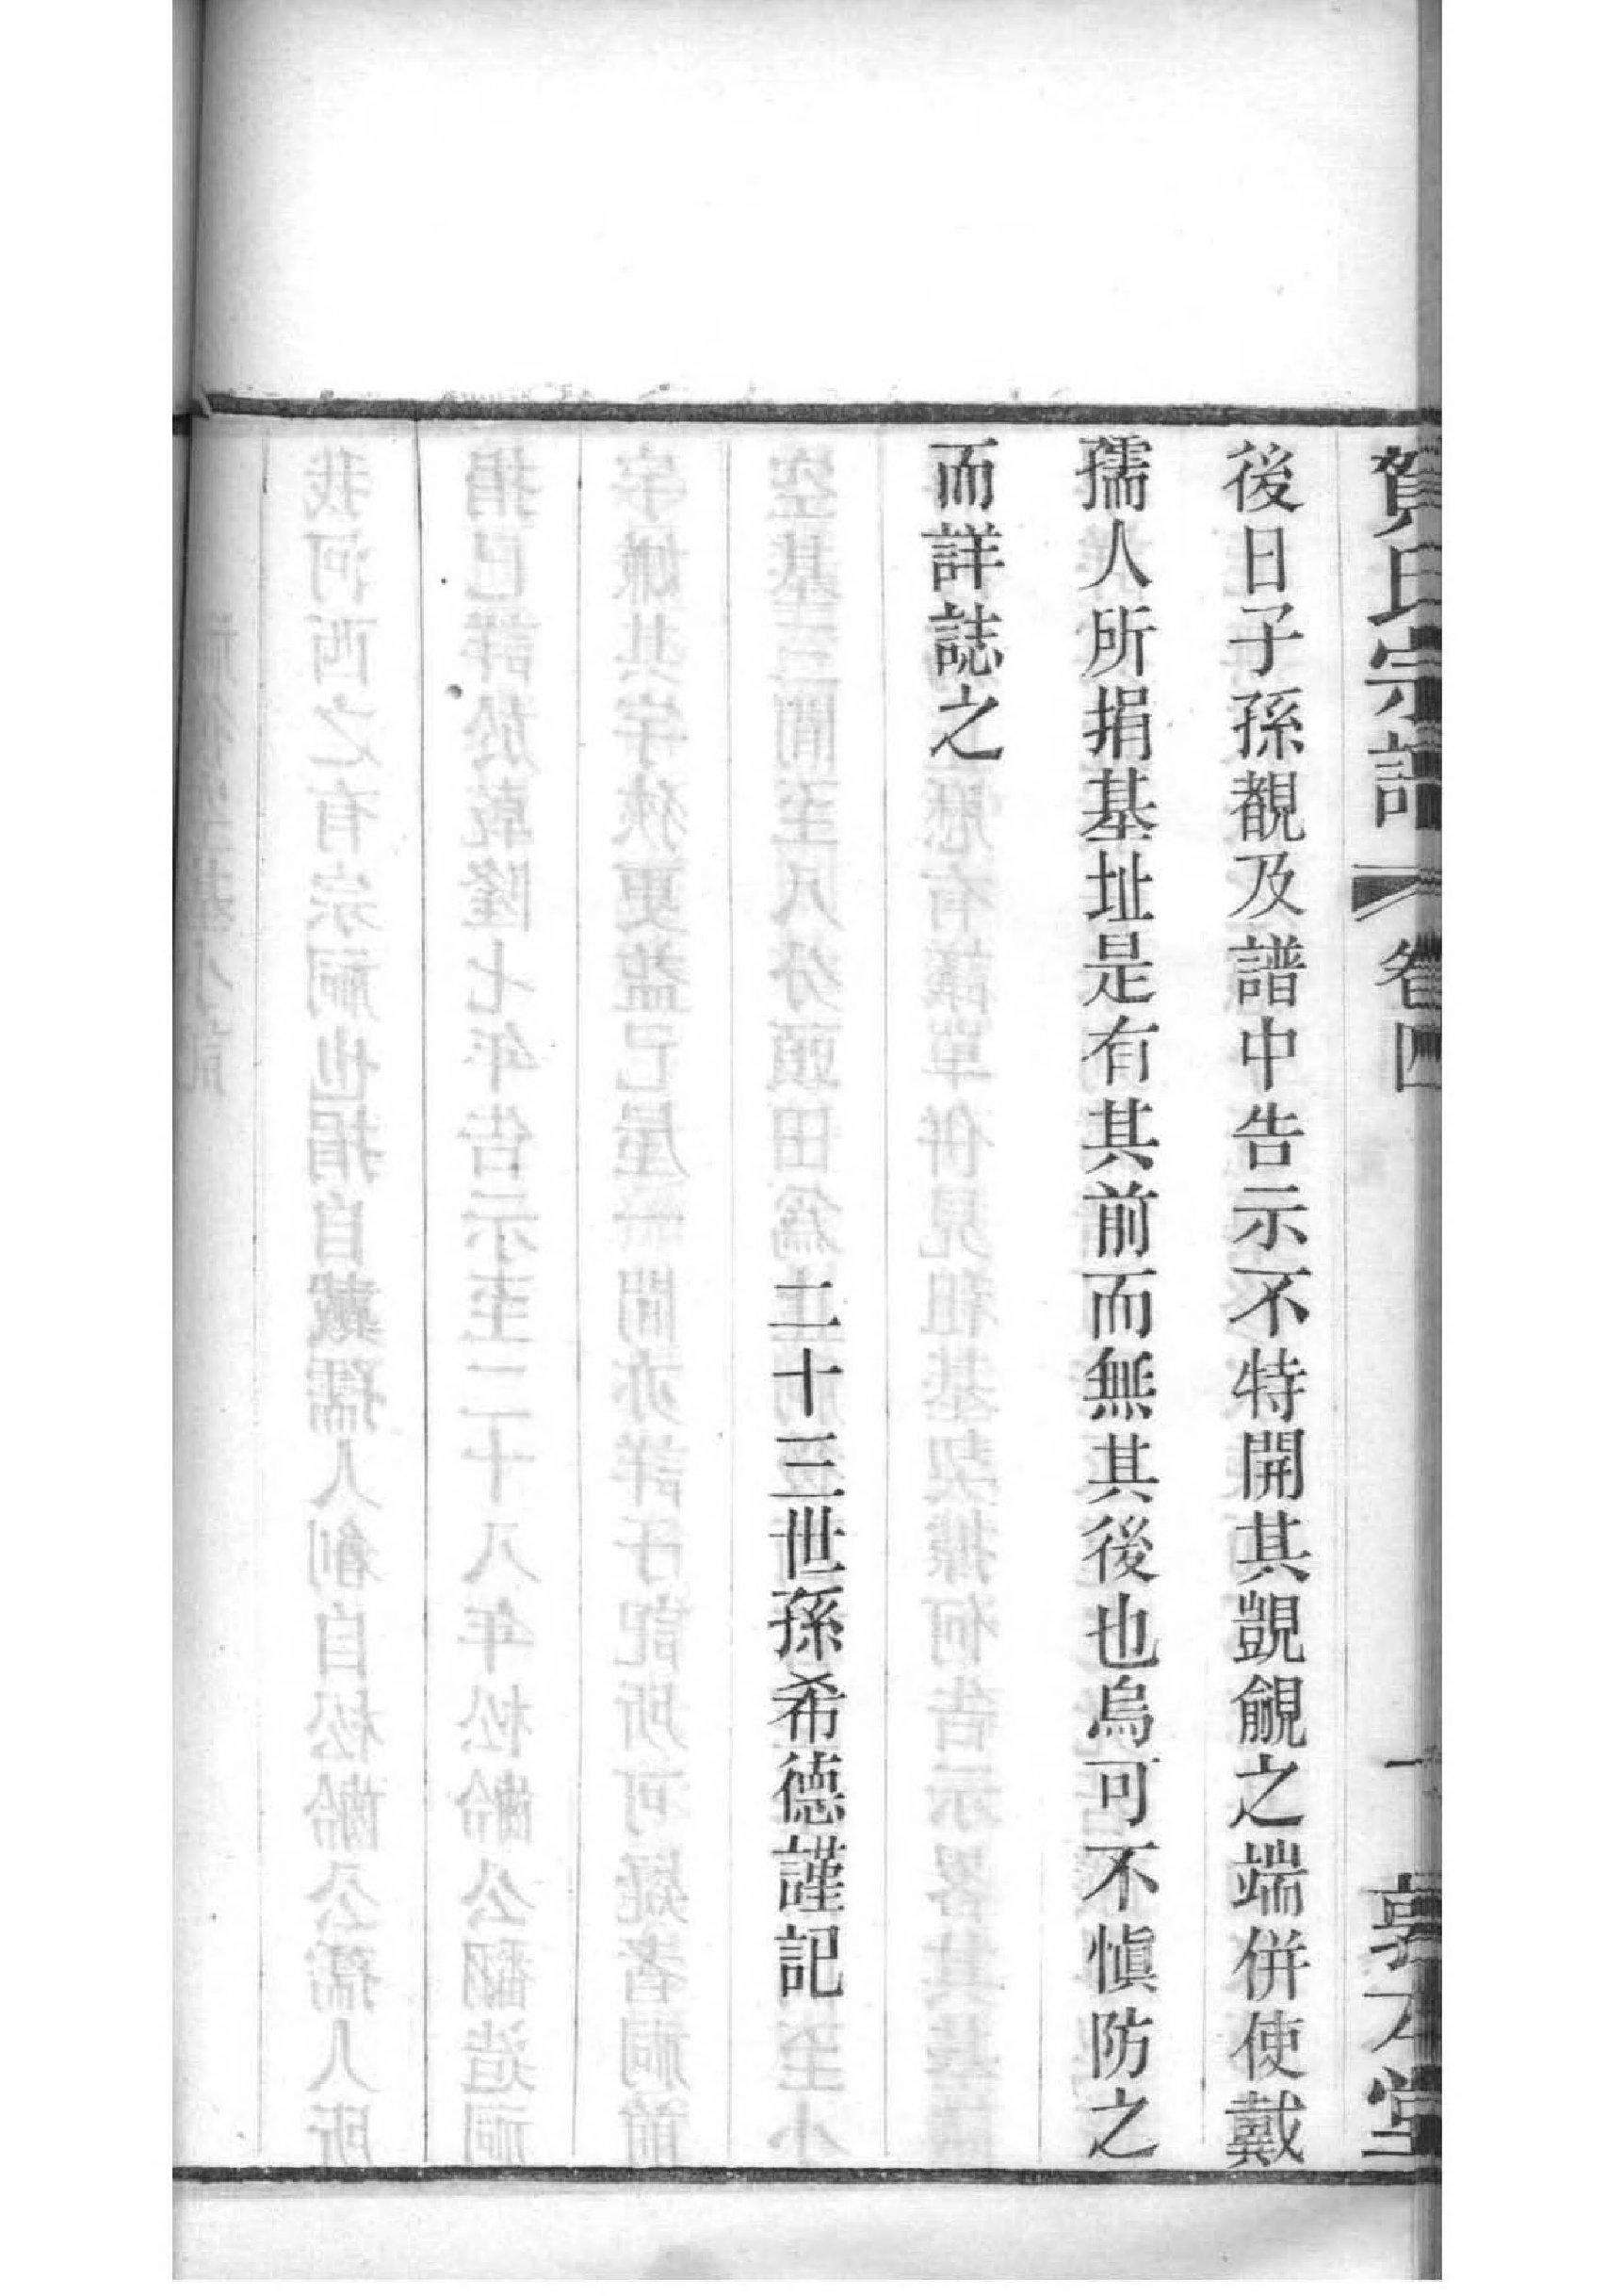 賀氏宗譜 卷四 一 敦本堂
後日子孫覩及譜中告示不特開其覬覦之端併使戴
孺人所捐基址是有其前而無其後也烏可不愼防之
而詳誌之
二十三世孫希德謹記